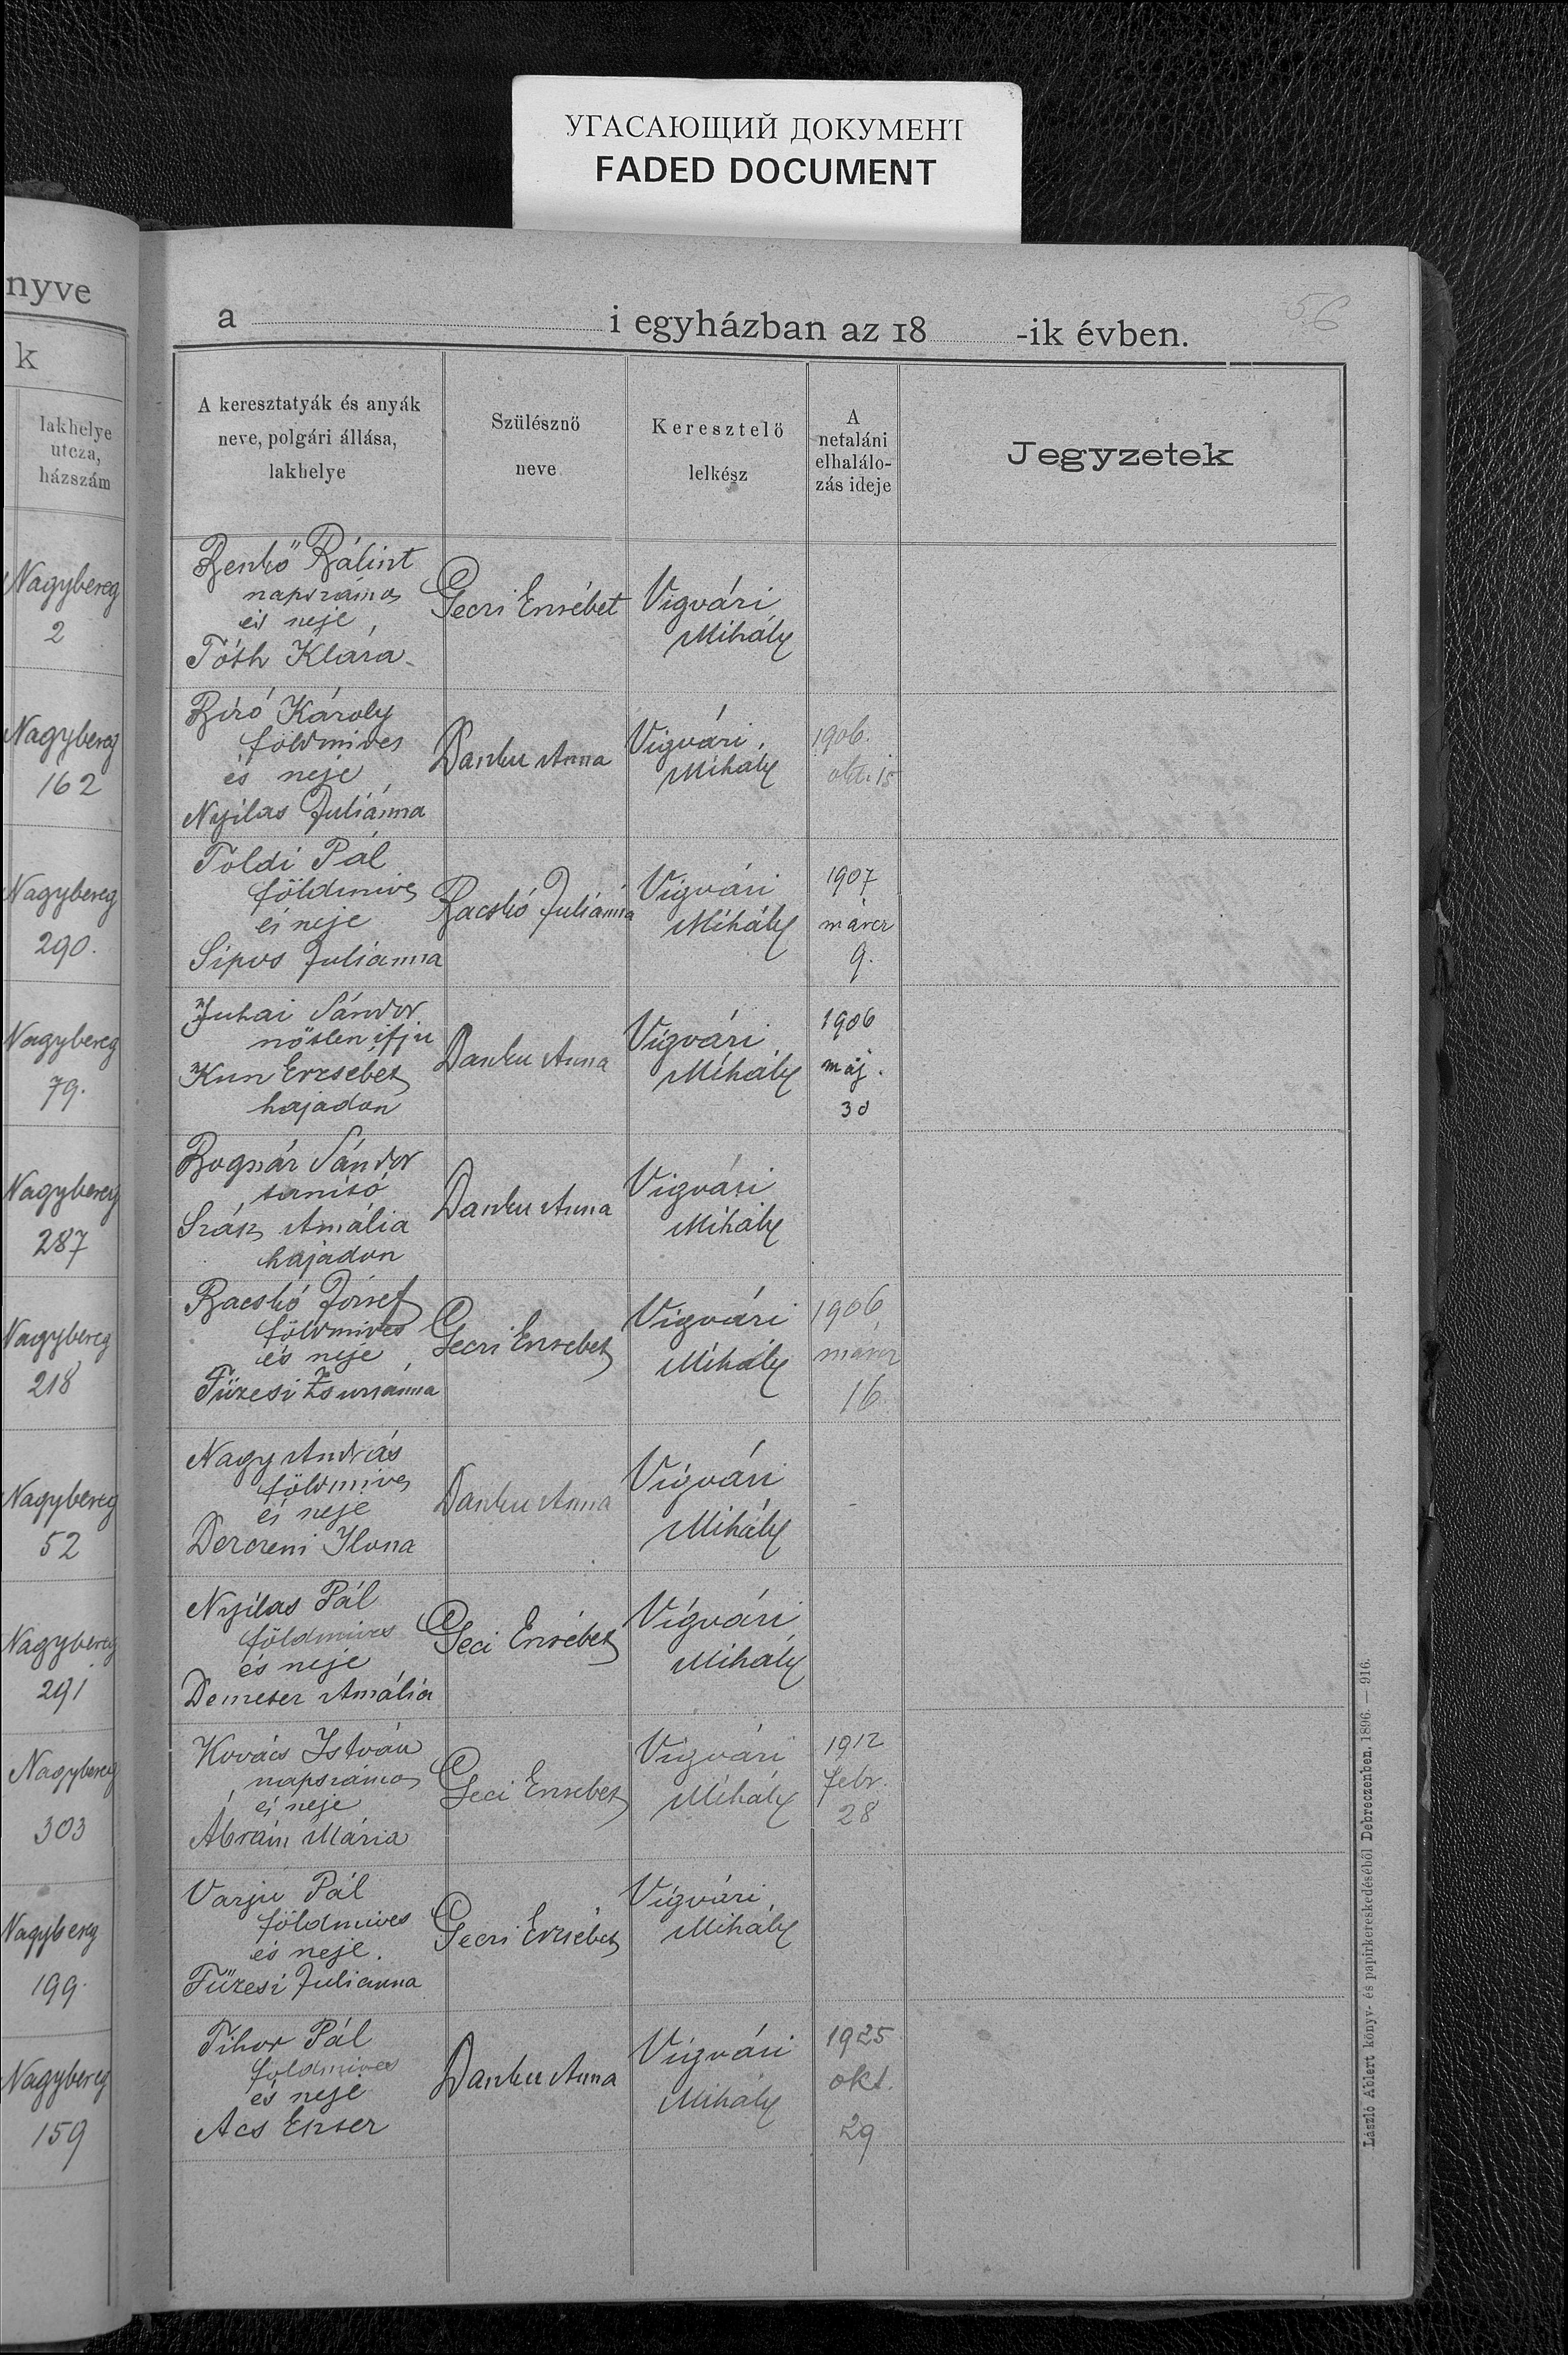 УГАСАЮЩИЙ ДОКУМЕНТ
FADED DOCUMENT
nyve
k
lakhelye
utcza,
házszám
Nagybereg
2
Nagybereg
162
Nagybereg
290.
Nagybereg
79.
Nagybereg
287
Nagybereg
218
Nagybereg
52
Nagybereg
291
Nagybereg
303
Nagybereg
199.
Nagybereg
159
56
a i egyházban az 18 -ik évben.
A keresztatyák és anyák
neve, polgári állása,
lakhelye
Szülésznő
neve
Keresztelő
lelkész
A
netaláni
elhalálo-
zás ideje
Jegyzetek
Benkő Bálint
napszámos
és neje,
Tóth Klára
Geczi Erzsébet
Vigvári
Mihály
Biró Károly
földmives
és neje
Nyilas Juliánna
Danku Anna
Vigvári
Mihály
1906.
okt. 15
Toldi Pál
földmives
és neje
Sipos Juliánna
Bacskó Juliánna
Vigvári
Mihály
1907
márcz
9.
Juhai Sándor
nőtlen ifju
Kun Erzsébet
hajadon
Danku Anna
Vigvári
Mihály
1906
máj.
30
Bognár Sándor
tanitó
Szász Amália
hajadon
Danku Anna
Vigvári
Mihály
Bacskó József
földmives
és neje
Füzesi Zsuzsánna
Geczi Erzsebet
Vigvári
Mihály
1906
márcz
16
Nagy András
földmives
és neje
Derczeni Ilona
Danku Anna
Vigvári
Mihály
Nyilas Pál
földmives
és neje
Demeter Amália
Geci Erzsébet
Vigvári
Mihály
Kovács István
napszámos
és neje
Ábrám Mária
Geci Erzsebet
Vigvári
Mihály
1912
febr.
28
Varju Pál
földmives
és neje.
Füzesi Julianna
Geczi Erzsébet
Vigvári
Mihály
Tihor Pál
földmives
és neje
Acs Eszter
Danku Anna
Vigvári
Mihály
1925
okt.
29
László Albert könyv- és papirkereskedéséből Debreczenben. 1896. — 916.